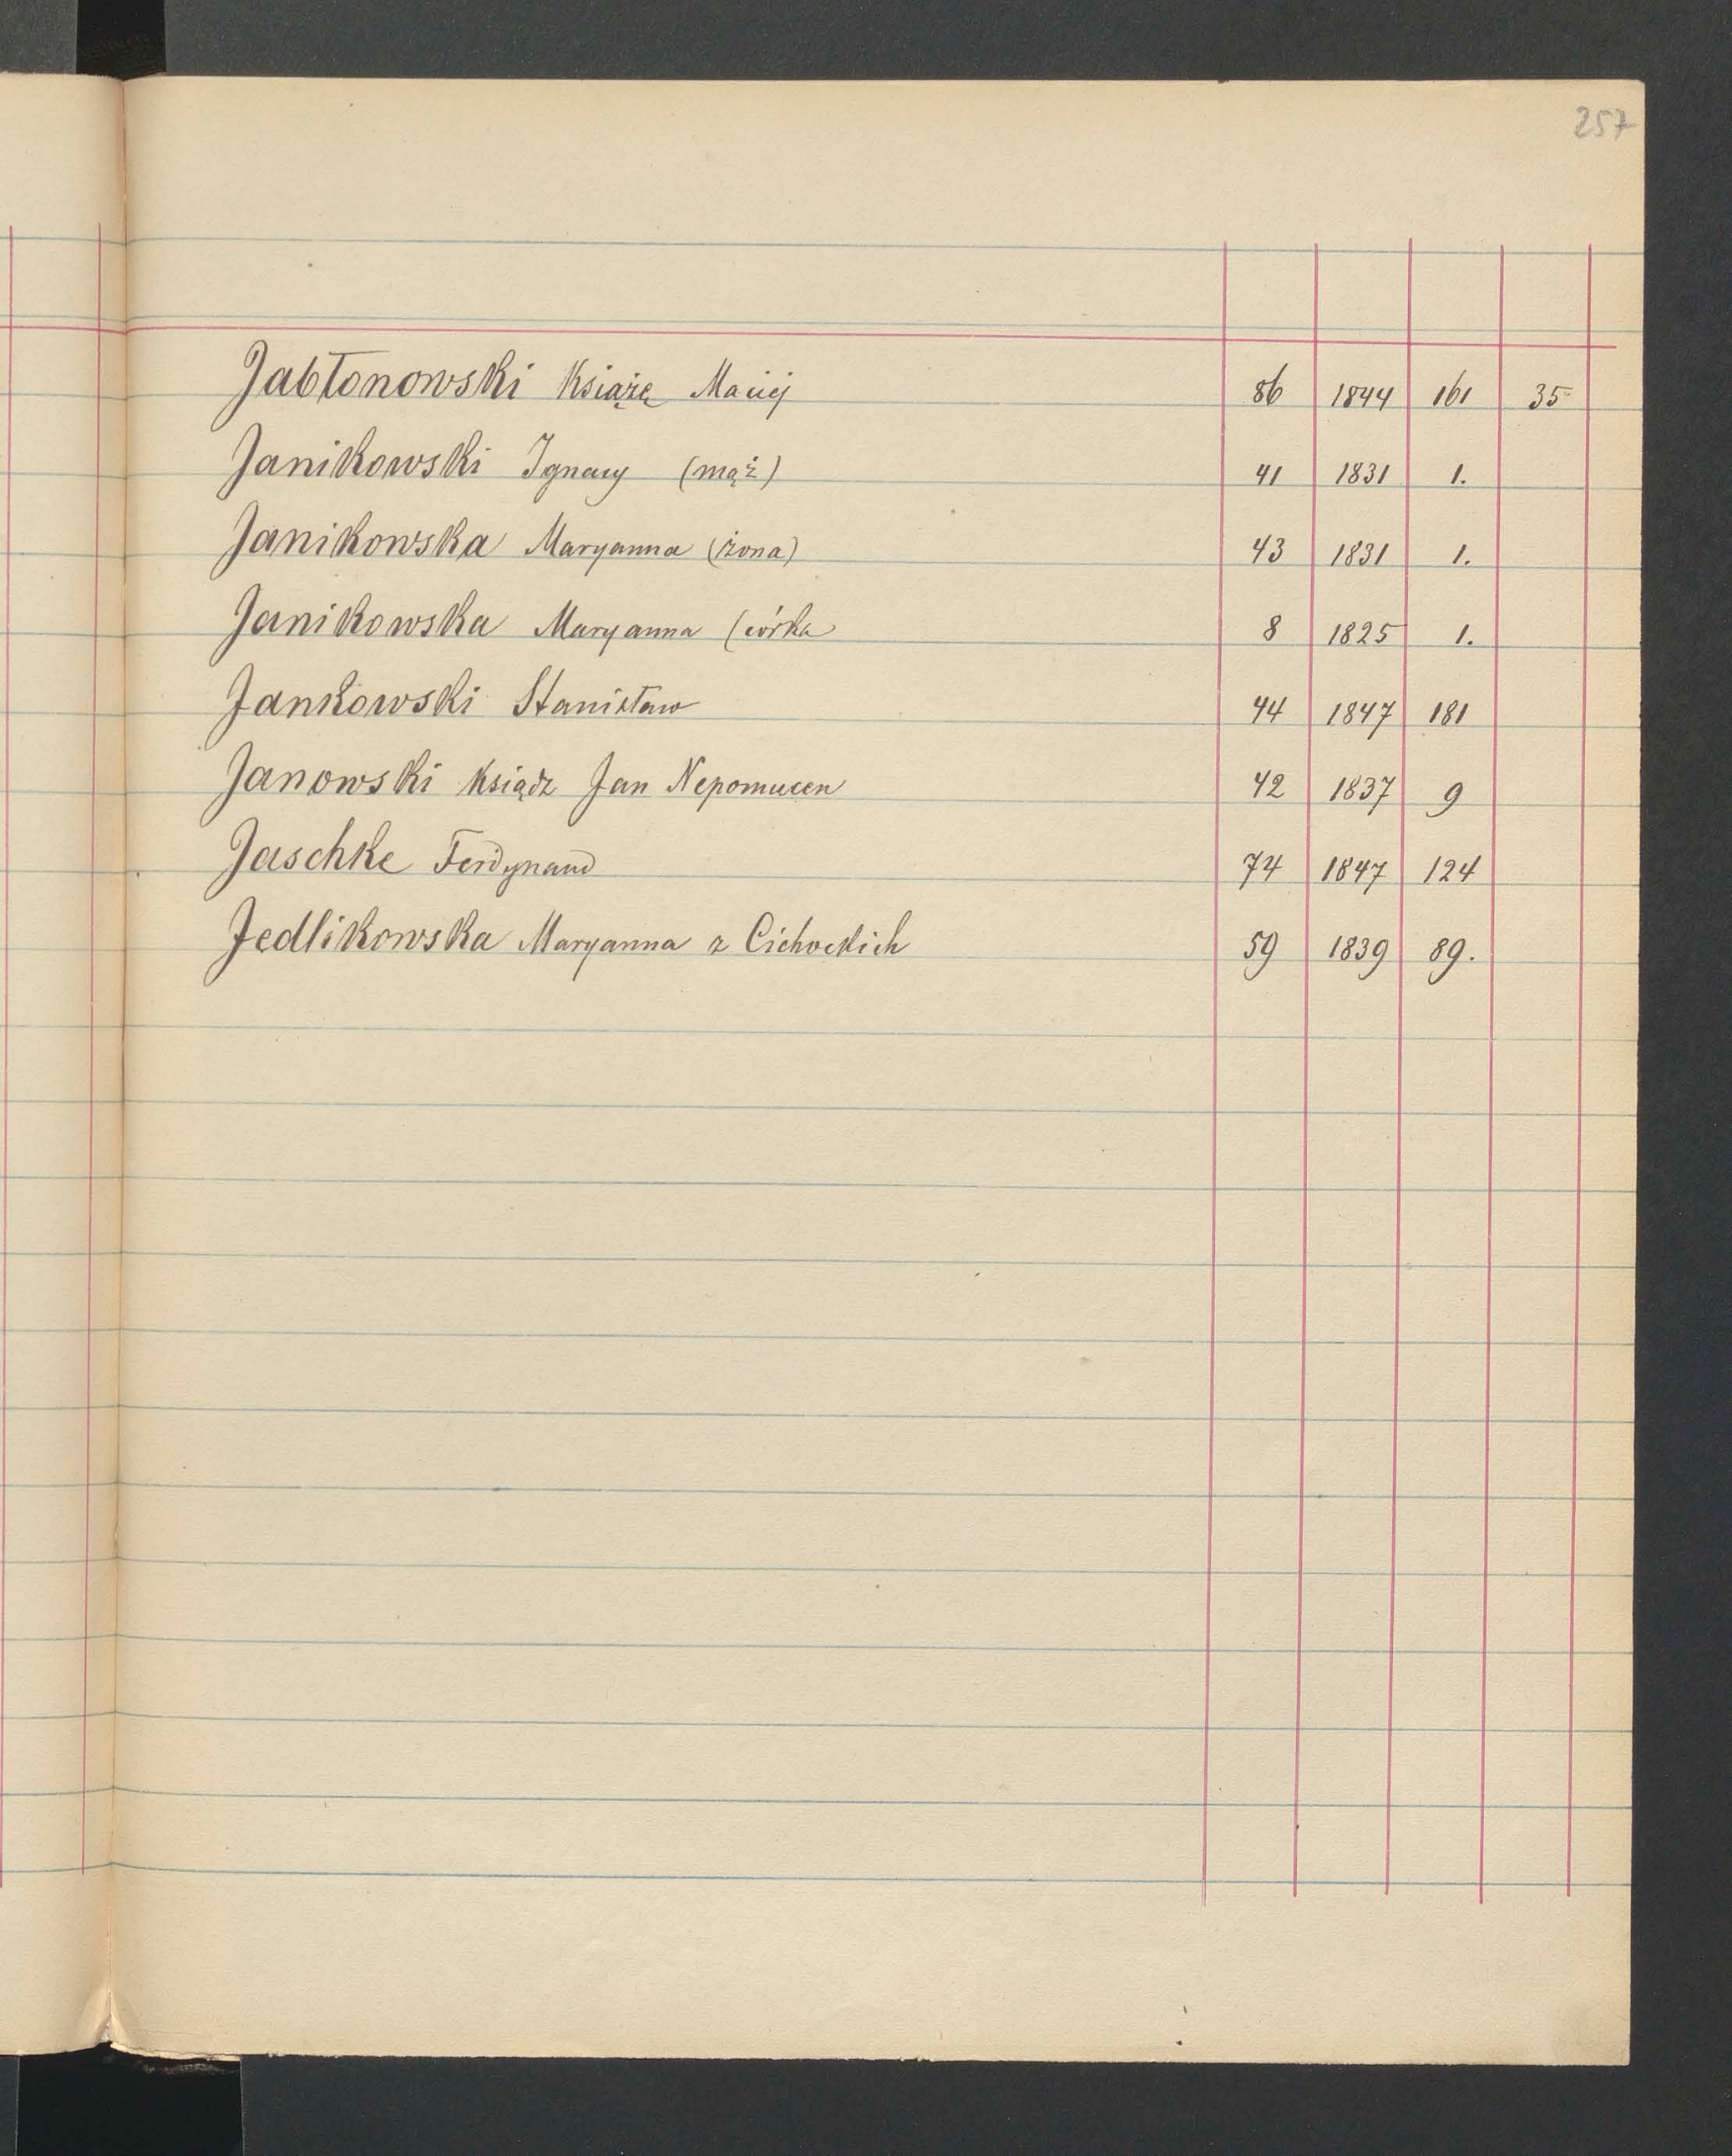 257
Jabłonowski Książę Maciej 86 1844 161 35
Janikowski Ignacy (mąż) 41 1831 1.
Janikowska Maryanna (żona) 43 1831 1.
Janikowska Maryanna (córka 8 1825 1.
Jankowski Stanisław 44 1847 181
Janowski Ksiądz Jan Nepomucen 42 1837 9
Jaschke Ferdynand 74 1847 124
Jedlikowska Maryanna z Cichockich 59 1839 89.